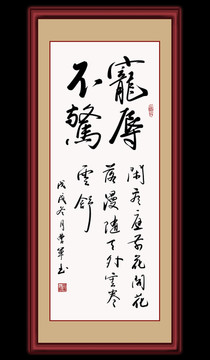 寵辱
不驚
閑看庭前花開花
落漫隨天外雲卷
雲舒
戊戌冬月